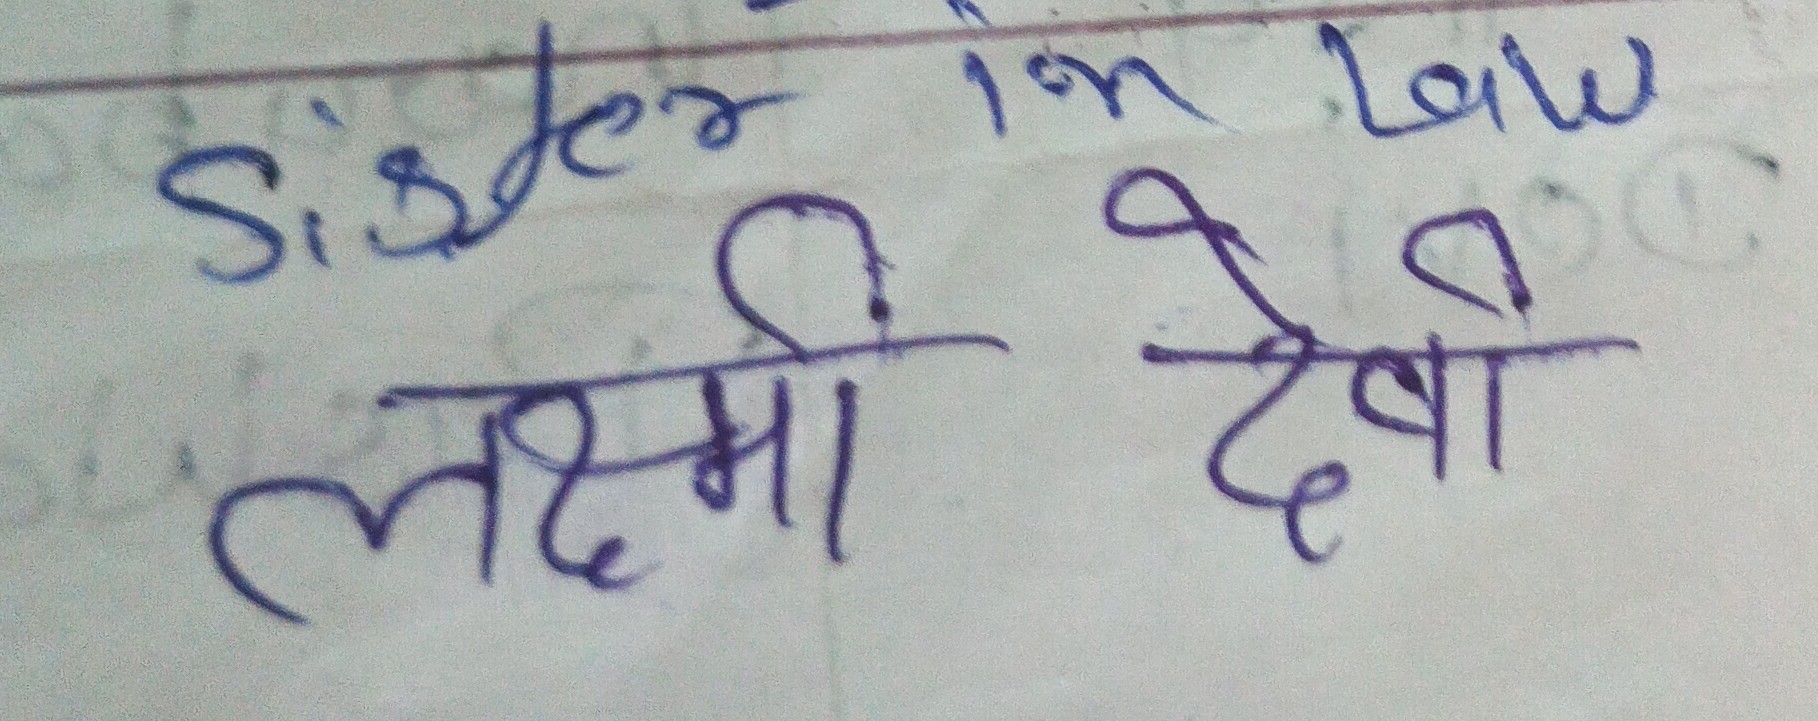 Sister in Law
लक्ष्मी देवी